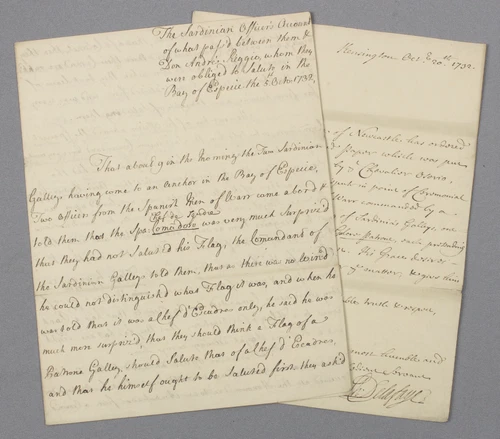 The Sardinian Officer's Account
of what pass'd between them &
Don Andres Reggio, whom they
were obliged to Salute in the
Bay of Especie the 5th Octr. 1732.
That about 9 in the Morning the Two Sardinian
Galleys having come to an Anchor in the Bay of Especie,
Two Officers from the Spanish Men of Warr came aboard &
Chef de Escadre
told them that the Spa: Comadore was very much Surprized
that they had not Saluted his Flag, the Comandant of
the Sardinian Galleys told them, that as there was no wind
he could not distinguish what Flag it was, and when he
was told that it was a Chef d'Escadre only, he said he was
much more surprized, that they should think a Flag of a
Patrone Galley, should Salute that of a Chef d'Escadre,
and that he himself ought to be Saluted first, they ask'd
Kensington Octr. 20th. 1732
of Newcastle has ordered
Paper which was put
by ye. Chevalier Osorio,
in point of Ceremonial
of Warr commanded by a
of Sardinia's Galleys, one
each pretending
His Grace desires
ye. matter, & gives him
with & respect
most humble and
Delafaye